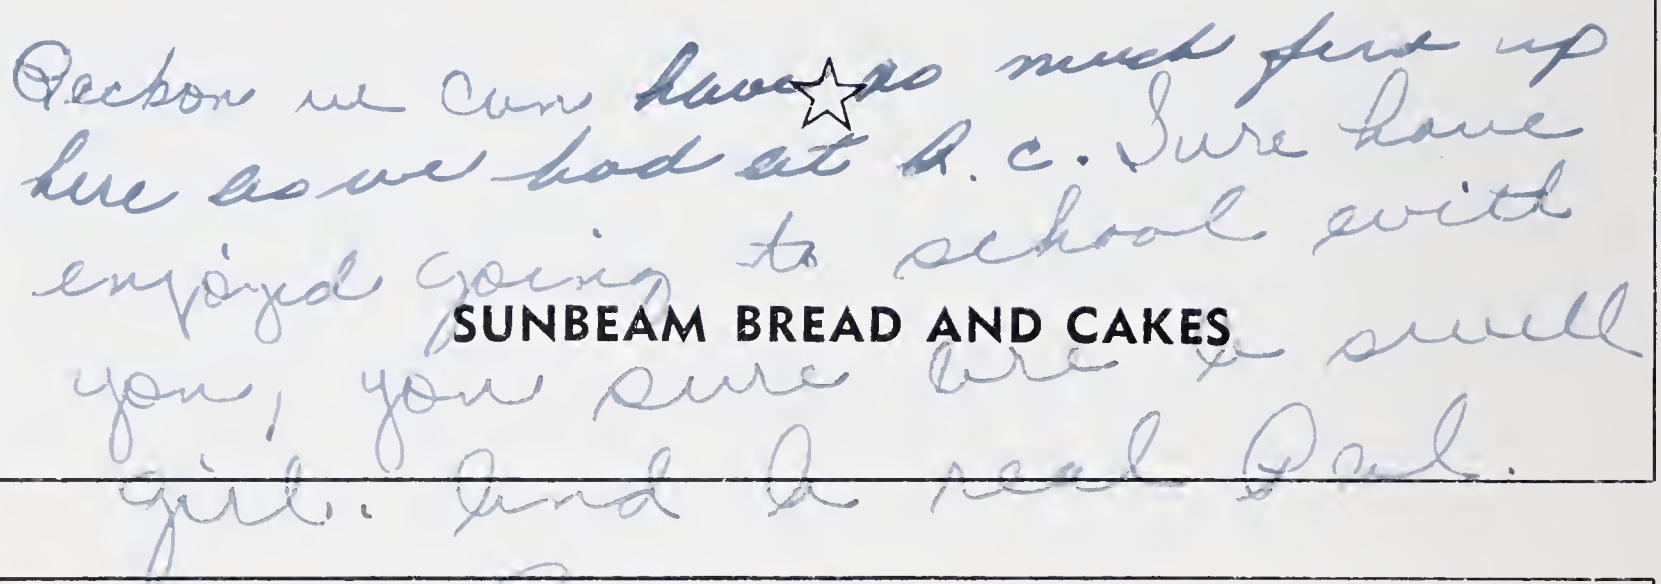 Reckon we can have as much fun up
here as we had at A. C. Sure have
enjoyed going to school with
SUNBEAM BREAD AND CAKES
you, you sure are a swell
girl. And a real Pal.